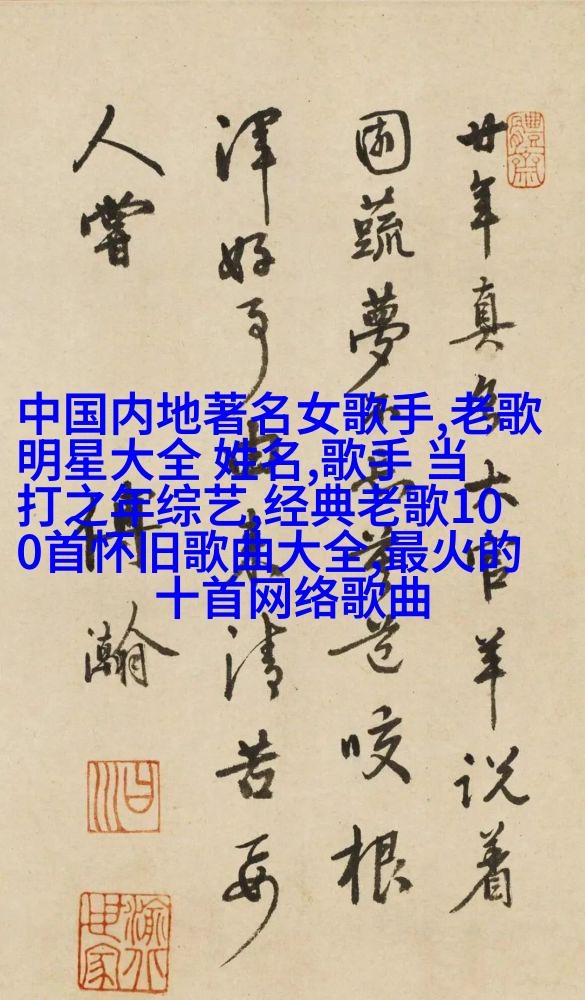 廿年真大官羊説着
園蔬夢咬根
渾好事由来清苦要
人嘗
傅瀚
體齋
中国内地著名女歌手,老歌
明星大全 姓名,歌手 当
打之年综艺,经典老歌10
0首怀旧歌曲大全,最火的
十首网络歌曲